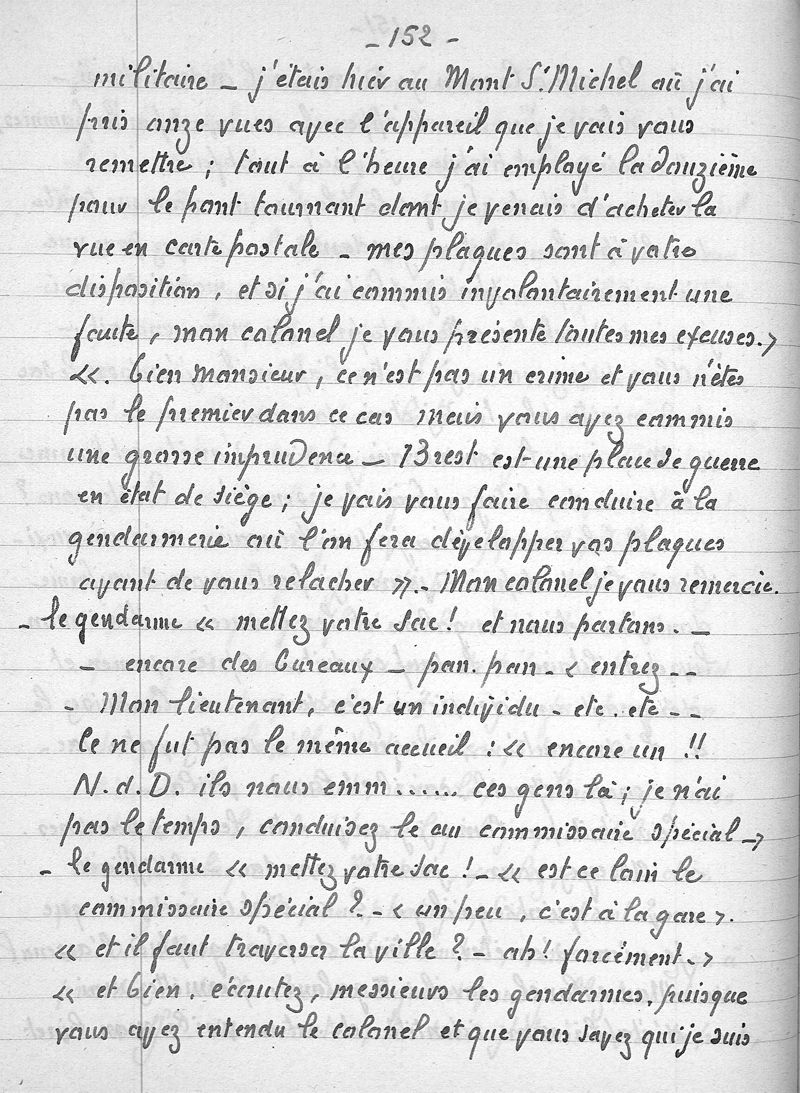 - 152 -
militaire - j'étais hier au Mont St Michel où j'ai
pris onze vues avec l'appareil que je vais vous
remettre ; tout à l'heure j'ai employé la douzième
pour le pont tournant dont je venais d'acheter la
vue en carte postale - mes plaques sont à votre
disposition, et si j'ai commis involontairement une
faute, mon colonel je vous présente toutes mes excuses. >
«. bien monsieur, ce n'est pas un crime et vous n'êtes
pas le premier dans ce cas mais vous avez commis
une grosse imprudence - Brest est une place de guerre
en état de siège ; je vais vous faire conduire à la
gendarmerie où l'on fera développer vos plaques
avant de vous relacher ». - Mon colonel je vous remercie.
- le gendarme « mettez votre sac ! et nous partons. -
- encore des bureaux - pan. pan - < entrez - -
- Mon lieutenant, c'est un individu - etc. etc - -
Ce ne fut pas le même accueil : « encore un !!
N. d. D. ils nous emm...... ces gens là ; je n'ai
pas le temps, conduisez le au commissaire spécial - >
- le gendarme « mettez votre sac ! - « est ce loin le
commissaire spécial ? - < un peu, c'est à la gare >.
« et il faut traverser la ville ? - ah ! forcément. >
« et bien. écoutez, messieurs les gendarmes, puisque
vous avez entendu le colonel et que vous savez qui je suis